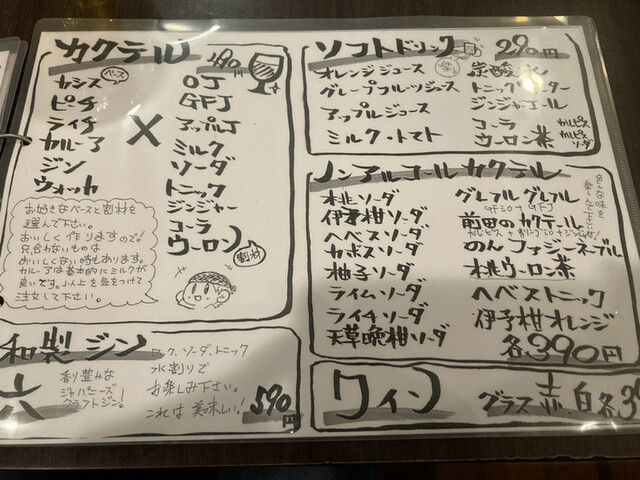 カクテル
カシス ベース
ピーチ
ライチ
カルーア
ジン
ウォッカ
X
OJ
GFJ
アップルJ
ミルク
ソーダ
トニック
ジンジャー
コーラ
ウーロン
割材
お好きなベースと割材を
選んで下さい。
おいしく作りますので!
只合わないものは
おいしくない時もあります。
カルーアは基本的にミルクが
良いです。以上を気をつけて
注文して下さい。
和製ジン
六
香り豊かな
ジャパニーズ
クラフトジン!
ロック、ソーダ、トニック
水割りで
お楽しみ下さい。
これは美味しい!
590円
ソフトドリンク 290円
オレンジジュース
グレープフルーツジュース
アップルジュース
ミルク・トマト
炭酸水
トニックウォーター
ジンジャエール
コーラ カルピス
ウーロン茶 カルピスソーダ
ノンアルコールカクテル
桃ソーダ
伊予柑ソーダ
ヘベスソーダ
カボスソーダ
柚子ソーダ
ライムソーダ
ライチソーダ
天草晩柑ソーダ
グレフル グレフル
前田のカクテル
のんファジーネーブル
桃ウーロン茶
ヘベストニック
伊予柑オレンジ
各390円
色んな味を
楽しんで下さい
ワイン
グラス 赤・白 各39